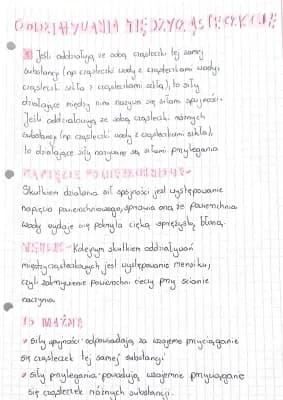 ODDZIAŁYWANIA MIĘDZYCZĄSTECZKOWE
Jeśli oddziałują ze sobą cząsteczki tej samej
substancji (np. cząsteczki wody z cząsteczkami wody,
cząsteczki szkła z cząsteczkami szkła), to siły
działające między nimi nazywa się siłami spójności.
Jeśli oddziałują ze sobą cząsteczki różnych
substancji (np. cząsteczki wody z cząsteczkami szkła),
to działające siły nazywane są siłami przylegania
NAPIĘCIE POWIERZCHNIOWE-
Skutkiem działania sił spójności jest występowanie
napięcia powierzchniowego, sprawia ona, że powierzchnia
wody wydaje się pokryta cienką sprężystą błoną.
MENISK- Kolejnym skutkiem oddziaływań
międzycząsteczkowych jest występowanie menisku,
czyli zakrzywienie powierzchni cieczy przy ścianie
naczynia
TO WAŻNE
siły spójności-odpowiadają za wzajemne przyciąganie
się cząsteczek tej samej substancji
siły przylegania-powodują wzajemne przyciąganie
się cząsteczek różnych substancji.